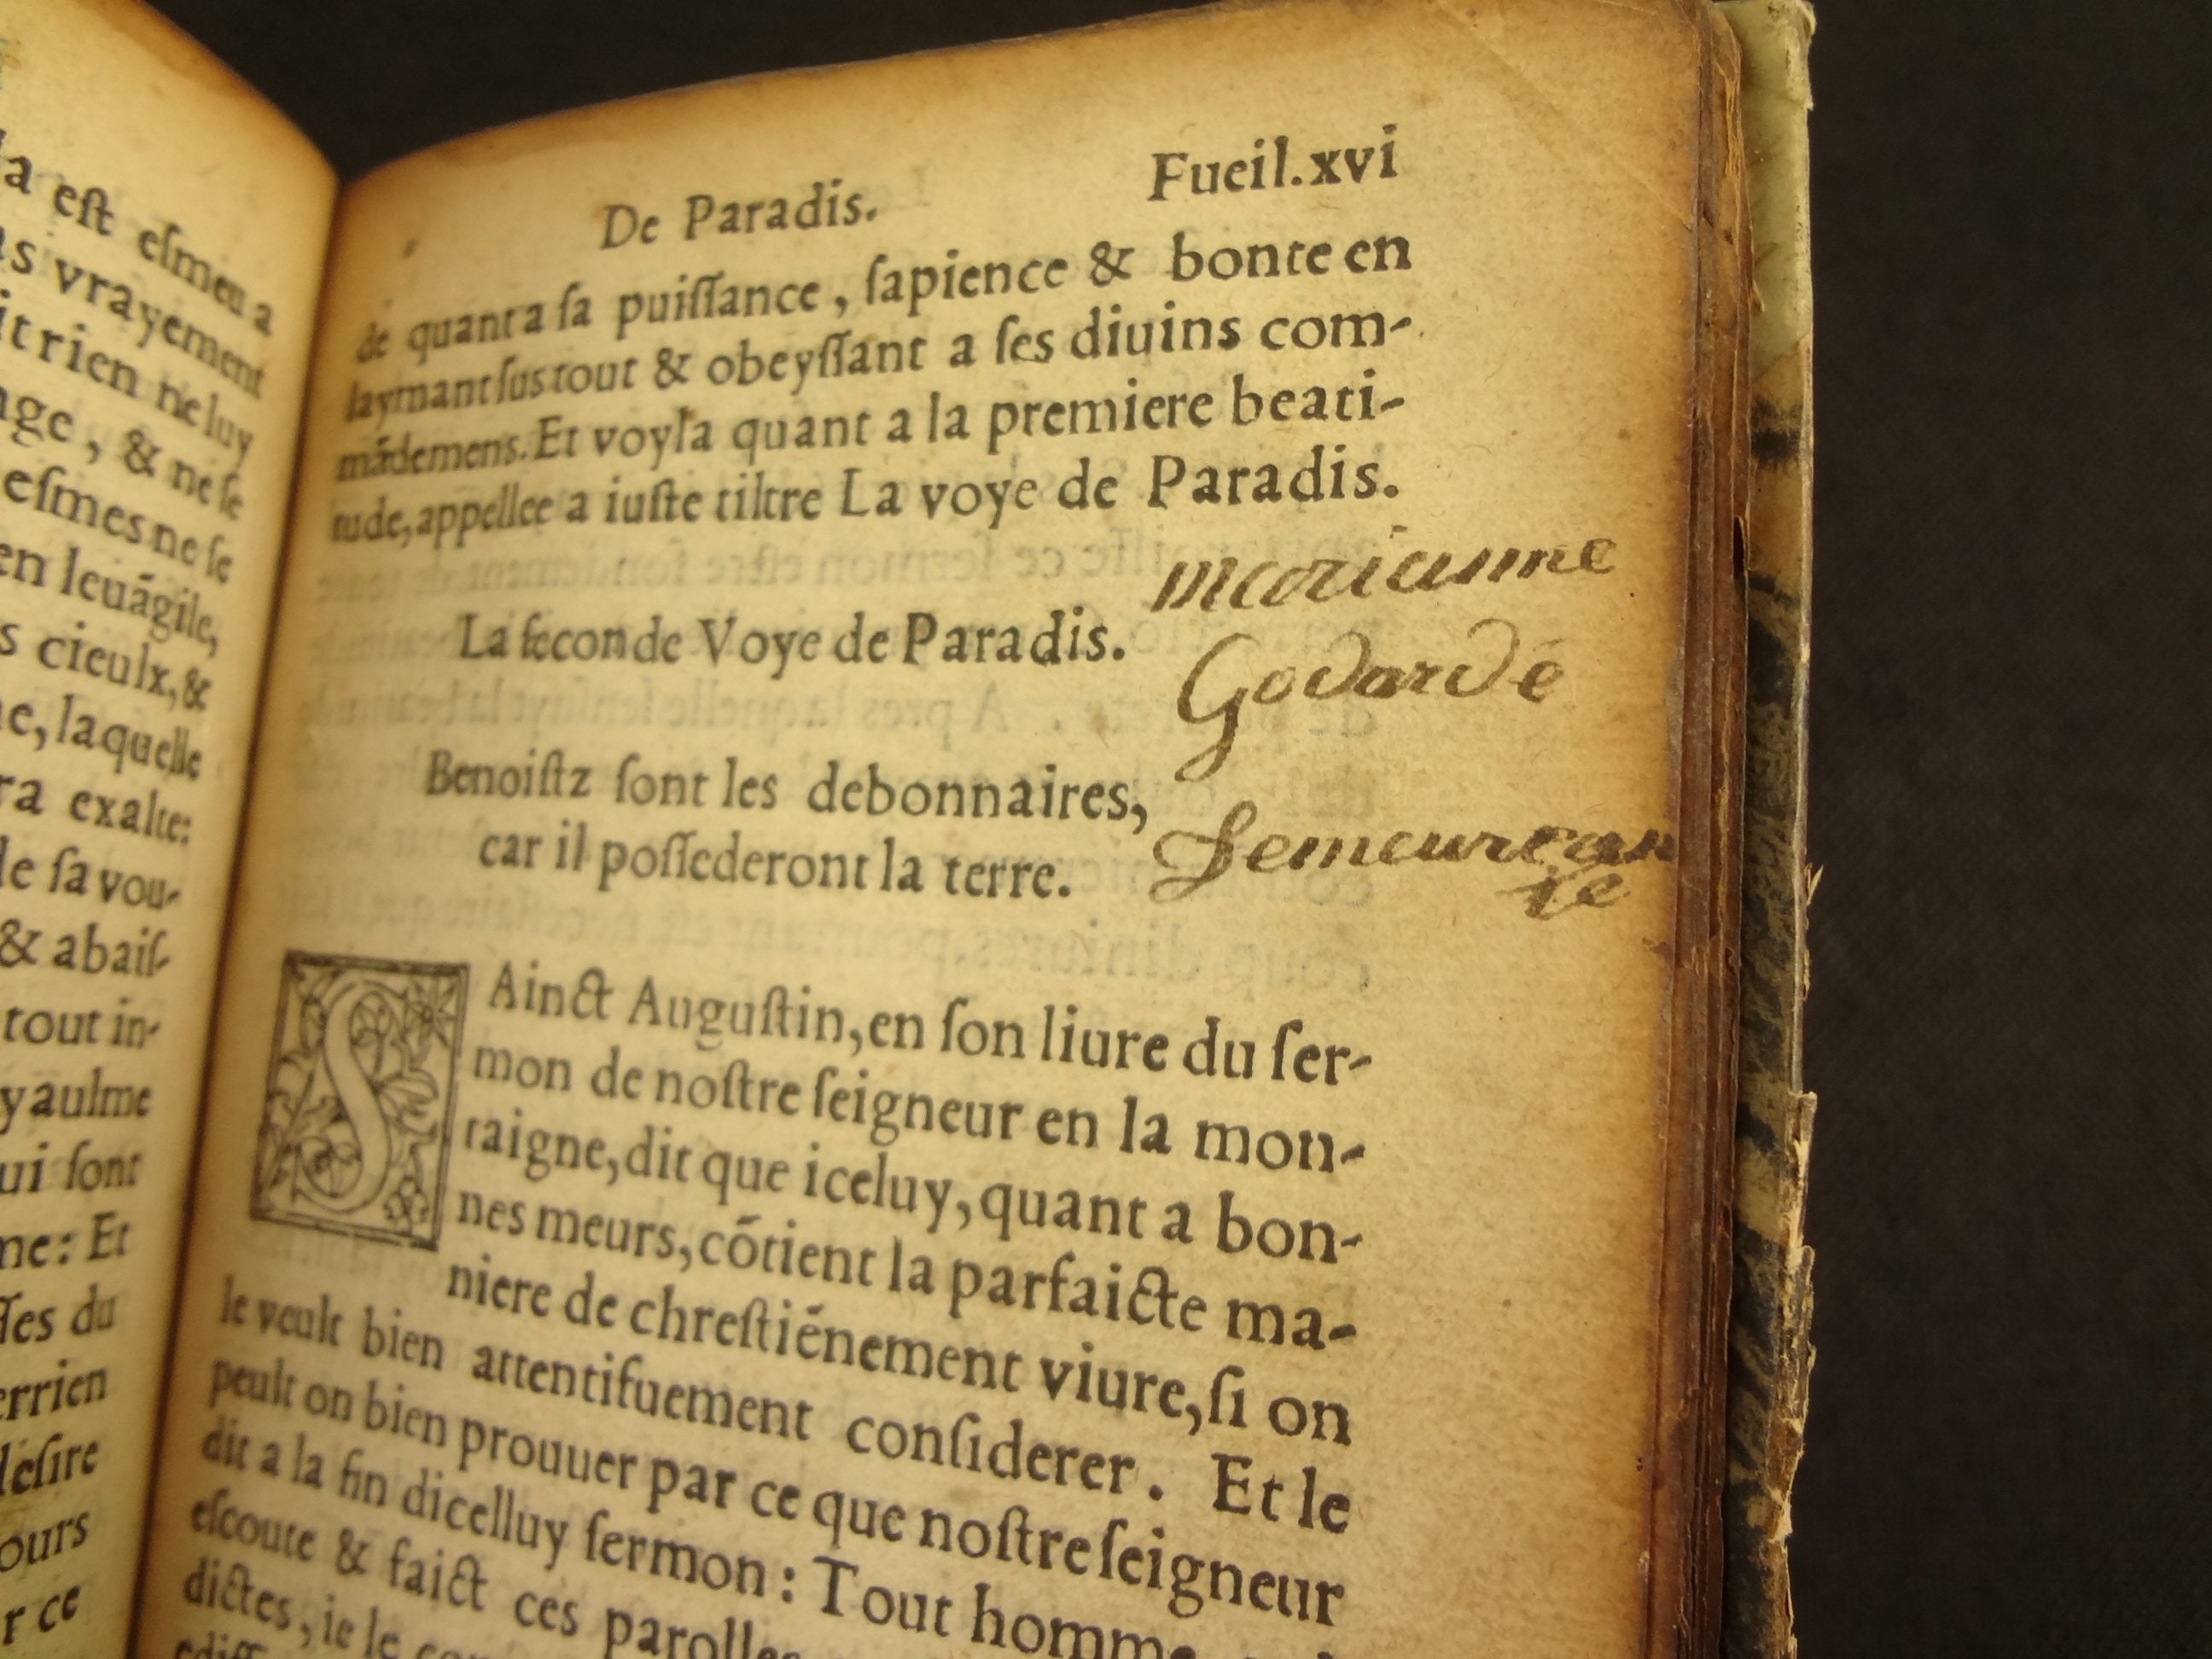 a eſt eſmeu a
s vrayement
it rien ne luy
age, & ne ſe
eſmes ne ſe
en leuãgile,
s cieulx, &
e, laquelle
ra exalte:
de ſa vou-
& abaiſ-
tout in-
yaulme
ui ſont
me: Et
ſſes du
errien
deſire
ours
r ce
De Paradis. Fueil.xvi
de quant a ſa puiſſance, ſapience & bonte en
laymant ſus tout & obeyſſant a ſes diuins com-
mãdemens. Et voyla quant a la premiere beati-
tude, appellee a iuſte tiltre La voye de Paradis.
marianne
La ſeconde Voye de Paradis.
Godardé
Benoiſtz ſont les debonnaires,
car il poſſederont la terre.
Demeurean
te
SAinct Auguſtin, en ſon liure du ſer-
mon de noſtre ſeigneur en la mon-
taigne, dit que iceluy, quant a bon-
nes meurs, cõtient la parfaicte ma-
niere de chreſtiẽnement viure, ſi on
le veult bien attentifuement conſiderer. Et le
peult on bien prouuer par ce que noſtre ſeigneur
dit a la fin dicelluy ſermon: Tout homme
eſcoute & faict ces parolles
dictes, ie le
ediff